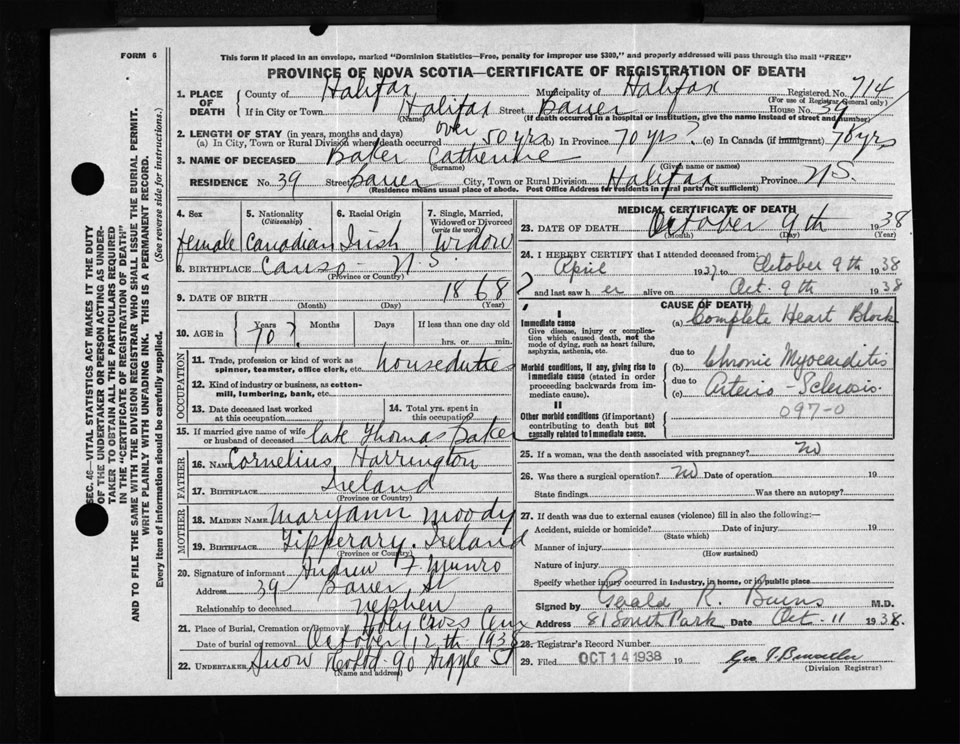 FORM 6
This form if placed in an envelope, marked "Dominion Statistics—Free, penalty for improper use $300," and properly addressed will pass through the mail "FREE"
PROVINCE OF NOVA SCOTIA—CERTIFICATE OF REGISTRATION OF DEATH
1. PLACE OF DEATH
County of Halifax Municipality of Halifax Registered No. 714
(For use of Registrar General only)
If in City or Town Halifax Street Bauer House No. 39
(Name) (If death occurred in a hospital or institution, give the name instead of street and number)
2. LENGTH OF STAY (in years, months and days)
(a) In City, Town or Rural Division where death occurred over 50 yrs (b) In Province 70 yrs? (c) In Canada (if immigrant) 70 yrs
3. NAME OF DECEASED Baker Catherine
(Surname) (Given name or names)
RESIDENCE No. 39 Street Bauer City, Town or Rural Division Halifax Province N.S.
(Residence means usual place of abode. Post Office Address for residents in rural parts not sufficient)
4. Sex female
5. Nationality (Citizenship) Canadian
6. Racial Origin Irish
7. Single, Married, Widowed or Divorced (write the word) Widow
8. BIRTHPLACE Canso N.S.
(Province or Country)
9. DATE OF BIRTH 1868
(Month) (Day) (Year)
10. AGE in Years 70? Months Days If less than one day old
hrs. or min.
OCCUPATION
11. Trade, profession or kind of work as spinner, teamster, office clerk, etc. houseduties
12. Kind of industry or business, as cotton-mill, lumbering, bank, etc.
13. Date deceased last worked at this occupation
14. Total yrs. spent in this occupation
15. If married give name of wife or husband of deceased late Thomas Baker
FATHER
16. NAME Cornelius Harrington
17. BIRTHPLACE Ireland
(Province or Country)
MOTHER
18. MAIDEN NAME Maryann Moody
19. BIRTHPLACE Tipperary. Ireland
(Province or Country)
20. Signature of informant Andrew F Munro
Address 39 Bauer St
Relationship to deceased nephew
21. Place of Burial, Cremation or Removal Holy Cross Cem
Date of burial or removal October 12th 1938
22. UNDERTAKER Snow 90 Argyle St
(Name and address)
MEDICAL CERTIFICATE OF DEATH
23. DATE OF DEATH October 9th 1938
(Month) (Day) (Year)
24. I HEREBY CERTIFY that I attended deceased from:
April 1937 to October 9th 1938
and last saw her alive on Oct. 9th 1938
CAUSE OF DEATH
I
Immediate cause
Give disease, injury or complication which caused death, not the mode of dying, such as heart failure, asphyxia, asthenia, etc.
(a) Complete Heart Block
due to
Morbid conditions, if any, giving rise to immediate cause (stated in order proceeding backwards from immediate cause).
Chronic Myocarditis
due to
(c) Arterio-Sclerosis.
097-0
II
Other morbid conditions (if important) contributing to death but not causally related to immediate cause.
25. If a woman, was the death associated with pregnancy? no
26. Was there a surgical operation? no Date of operation 19
State findings Was there an autopsy?
27. If death was due to external causes (violence) fill in also the following:—
Accident, suicide or homicide? Date of injury 19
(State which)
Manner of injury
(How sustained)
Nature of injury
Specify whether injury occurred in industry, in home, or in public place
Signed by Gerald R. Burns M.D.
Address 81 South Park Date Oct. 11 1938.
28. Registrar's Record Number
29. Filed OCT 14 1938 19
(Division Registrar)
SEC. 46—VITAL STATISTICS ACT MAKES IT THE DUTY
OF THE UNDERTAKER OR PERSON ACTING AS UNDER-
TAKER TO OBTAIN ALL THE PARTICULARS REQUIRED
IN THE "CERTIFICATE OF REGISTRATION OF DEATH"
AND TO FILE THE SAME WITH THE DIVISION REGISTRAR WHO SHALL ISSUE THE BURIAL PERMIT.
WRITE PLAINLY WITH UNFADING INK. THIS IS A PERMANENT RECORD.
Every item of information should be carefully supplied. (See reverse side for instructions.)